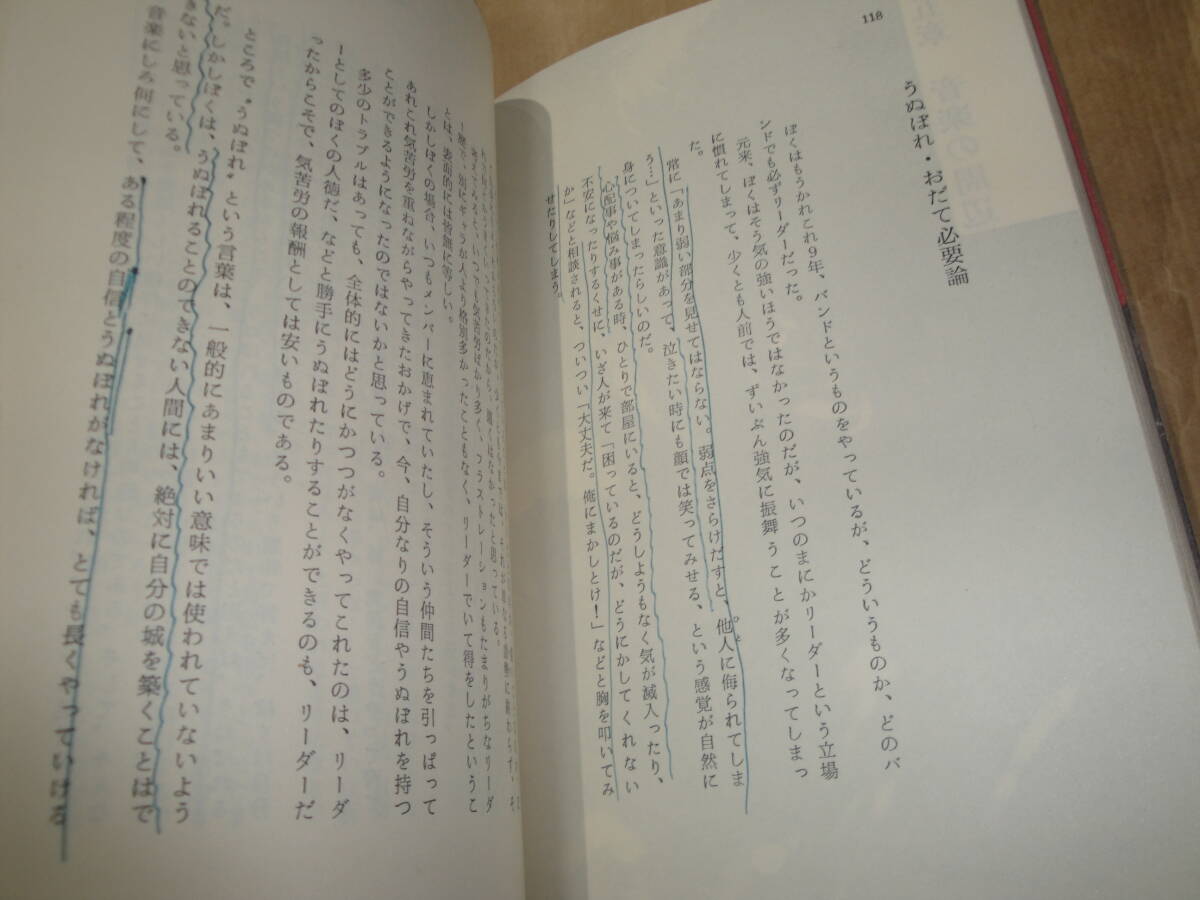 118
うぬぼれ・おだて必要論
ぼくはもうかれこれ9年、バンドというものをやっているが、どういうものか、どのバ
ンドでも必ずリーダーだった。
元来、ぼくはそう気の強いほうではなかったのだが、いつのまにかリーダーという立場
に慣れてしまって、少くとも人前では、ずいぶん強気に振舞うことが多くなってしまっ
た。
常に「あまり弱い部分を見せてはならない。弱点をさらけだすと、他人に侮られてしま
う…」といった意識があって、泣きたい時にも顔では笑ってみせる、という感覚が自然に
身についてしまったらしいのだ。
心配事や悩み事がある時、ひとりで部屋にいると、どうしようもなく気が滅入ったり、
不安になったりするくせに、いざ人が来て「困っているのだが、どうにかしてくれない
か」などと相談されると、ついつい「大丈夫だ。俺にまかしとけ！」などと胸を叩いてみ
せたりしてしまう。
ひと
とは、表面的には皆無に等しい。
しかしぼくの場合、いつもメンバーに恵まれていたし、そういう仲間たちを引っぱって
あれこれ気苦労を重ねながらやってきたおかげで、今、自分なりの自信やうぬぼれを持つ
ことができるようになったのではないかと思っている。
多少のトラブルはあっても、全体的にはどうにかつつがなくやってこれたのは、リーダ
ーとしてのぼくの人徳だ、などと勝手にうぬぼれたりすることができるのも、リーダーだ
ったからこそで、気苦労の報酬としては安いものである。
ところで〝うぬぼれ〟という言葉は、一般的にあまりいい意味では使われていないよう
だ。しかしぼくは、うぬぼれることのできない人間には、絶対に自分の城を築くことはで
きないと思っている。
音楽にしろ何にして、ある程度の自信とうぬぼれがなければ、とても長くやっていける